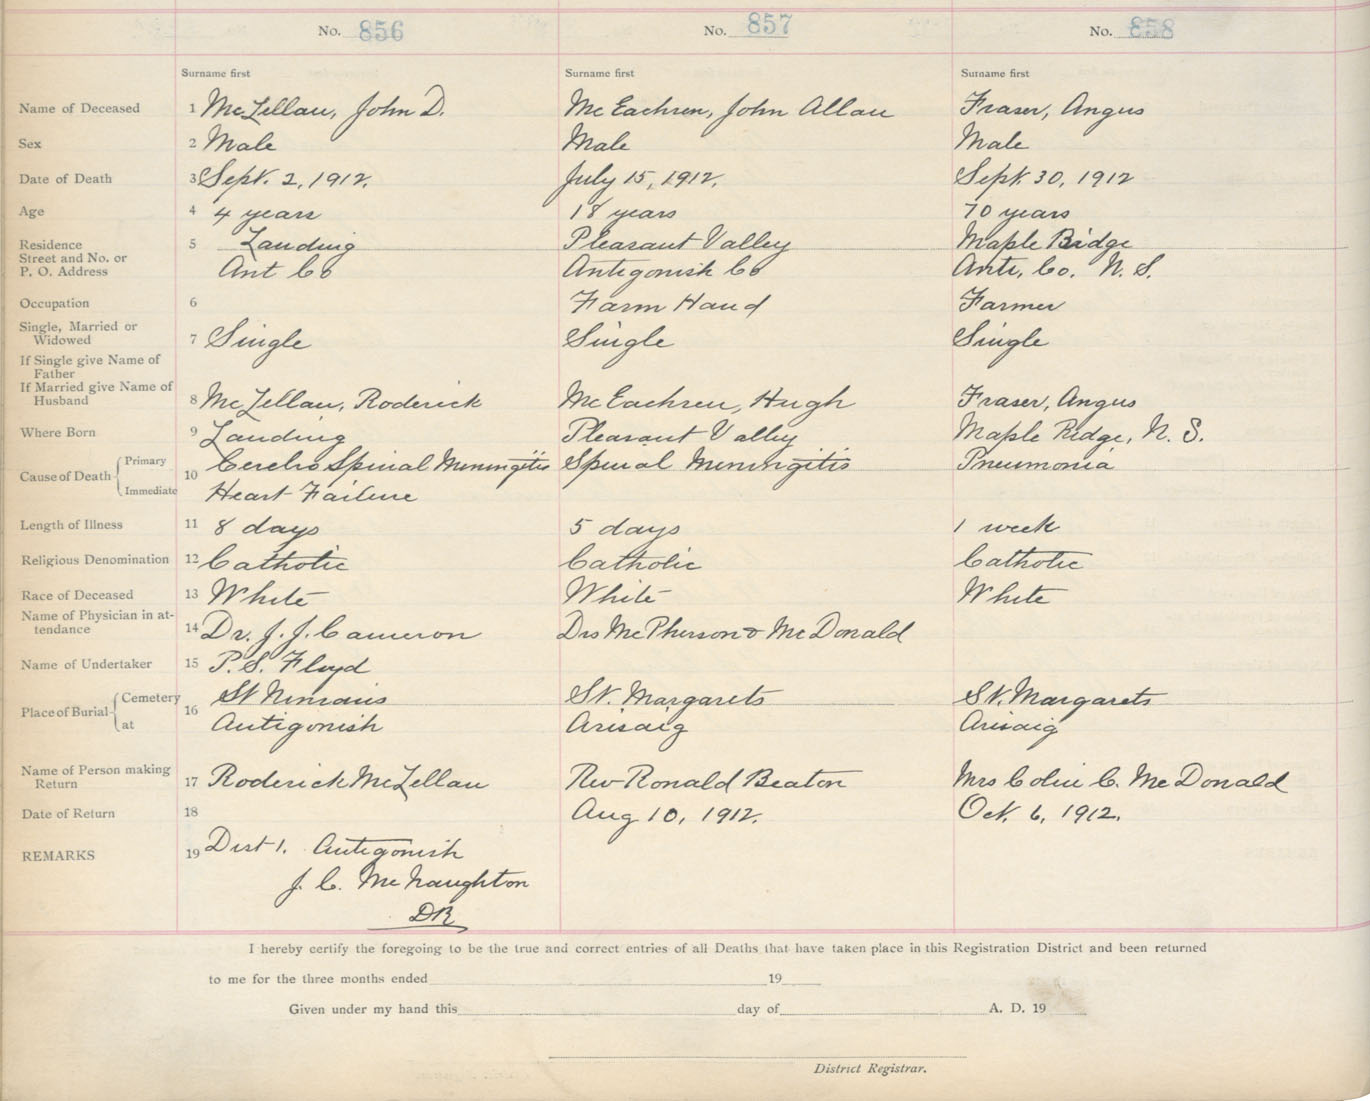 No. 856 No. 857 No. 858
Surname first Surname first Surname first
Name of Deceased 1 McLellan, John D. McEachren, John Allan Fraser, Angus
Sex 2 Male Male Male
Date of Death 3 Sept. 2, 1912. July 15, 1912. Sept. 30, 1912
Age 4 4 years 18 years 70 years
Residence 5 Landing Pleasant Valley Maple Ridge
Street and No. or
P. O. Address Ant Co Antigonish Co Anti, Co. N. S.
Occupation 6 Farm Hand Farmer
Single, Married or
Widowed 7 Single Single Single
If Single give Name of
Father
If Married give Name of
Husband 8 McLellan, Roderick McEachren, Hugh Fraser, Angus
Where Born 9 Landing Pleasant Valley Maple Ridge, N. S.
Cause of Death Primary 10 Cerebro Spinal Meningitis Spinal Meningitis Pneumonia
Immediate Heart Failure
Length of Illness 11 8 days 5 days 1 week
Religious Denomination 12 Catholic Catholic Catholic
Race of Deceased 13 White White White
Name of Physician in at-
tendance 14 Dr. J. J. Cameron Drs McPherson & McDonald
Name of Undertaker 15 P. S. Floyd
Place of Burial Cemetery 16 St Ninians St. Margarets St. Margarets
at Antigonish Arisaig Arisaig
Name of Person making
Return 17 Roderick McLellan Rev Ronald Beaton Mrs Colin C. McDonald
Date of Return 18 Aug 10, 1912. Oct. 6, 1912.
REMARKS 19 Dist 1. Antigonish
J. C. McNaughton
DR
I hereby certify the foregoing to be the true and correct entries of all Deaths that have taken place in this Registration District and been returned
to me for the three months ended 19
Given under my hand this day of A. D. 19
District Registrar.